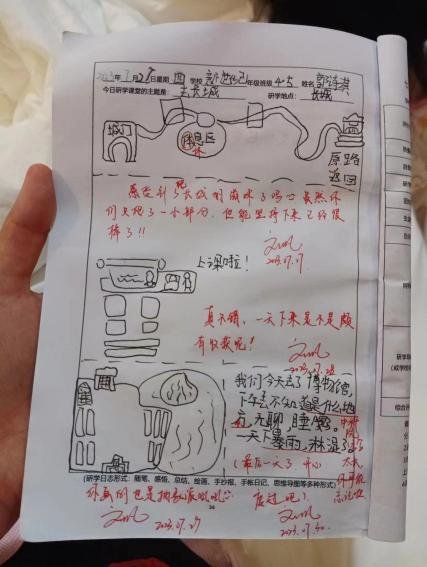 2023年7月27日星期 四 学校 新世纪 年级班级 4.5 姓名
今日研学课堂的主题是: 去长城 研学地点: 长城
城门
休息区
休
原路
返回
感受到了爬长城的成就了吗?虽然你
们只爬了一小部分,但能坚持下来已经很
棒了!!
2023.07.27
上课啦!
真不错,一天下来是不是颇
有收获呢!
2023.07.28
我们今天去了博物馆,
下午去不知道是什么地
方,无聊,睡觉。
一天下暴雨,淋湿了
(最后一天了,开心
(研学日志形式:随笔、感悟、总结、绘画、手抄报、手帐日记、思维导图等多种形式)
度过吧!
2023.07.27
2023.07.30